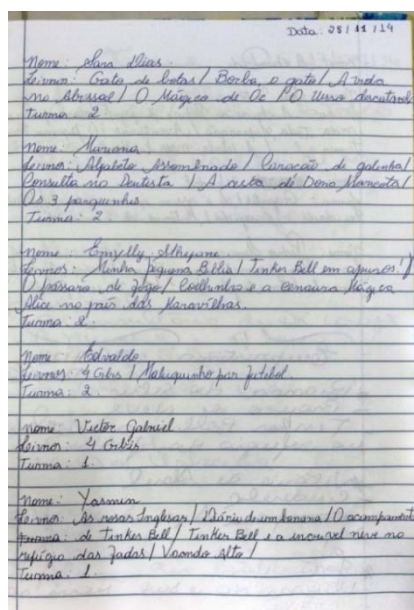 Data: 28/11/19
Nome: Sara Dias.
Livros: Gato de botas / Borba, o gato / A vida
no Abissal / O Mágico de Oc / O Urso
Turma: 2
Nome: Mariana
Livros: Alfabeto Assombrado / Coração de galinha /
Consulta no Dentista / A cesta de Dona Maricota /
Os 3 porquinhos
Turma: 2
Nome: Emylly
Livros: Minha pequena Bíblia / Tinker Bell em apuros! /
O pássaro de fogo / Coelhinho e a cenoura Mágica
Alice no país das Maravilhas.
Turma: 2.
Nome: Edvaldo
Livros: 4 Gibis / Maluquinho por futebol.
Turma: 2.
Nome: Victor Gabriel
Livros: 4 Gibis
Turma: 1.
Nome: Yasmin
Livros: As rosas Inglesas / Diário de um banana / O
de Tinker Bell / Tinker Bell e a incrível neve no
refúgio das fadas / Voando Alto /
Turma: 1.